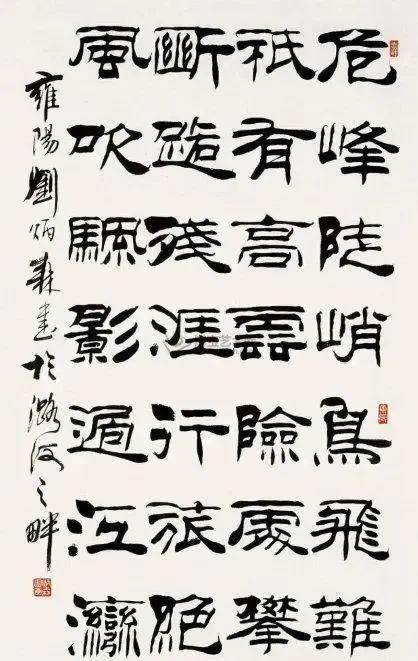 危峰陡峭鳥飛難
祇有高雲險處攀
斷殘涯行旅絕
風吹颿影過江灣
雍陽劉炳森書於潞河之畔